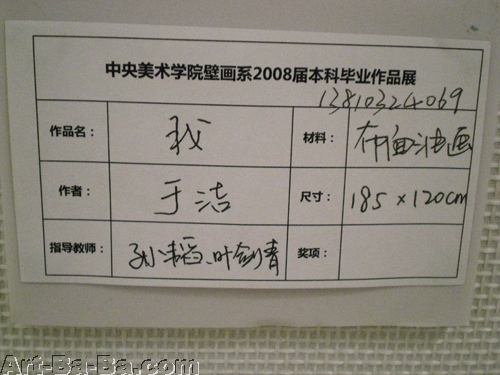 中央美术学院壁画系2008届本科毕业作品展
13810324069
作品名： 我 材料： 布面油画
作者： 于洁 尺寸： 185×120cm
指导教师： 孙韬、叶剑青 奖项：
Art-Ba-Ba.com